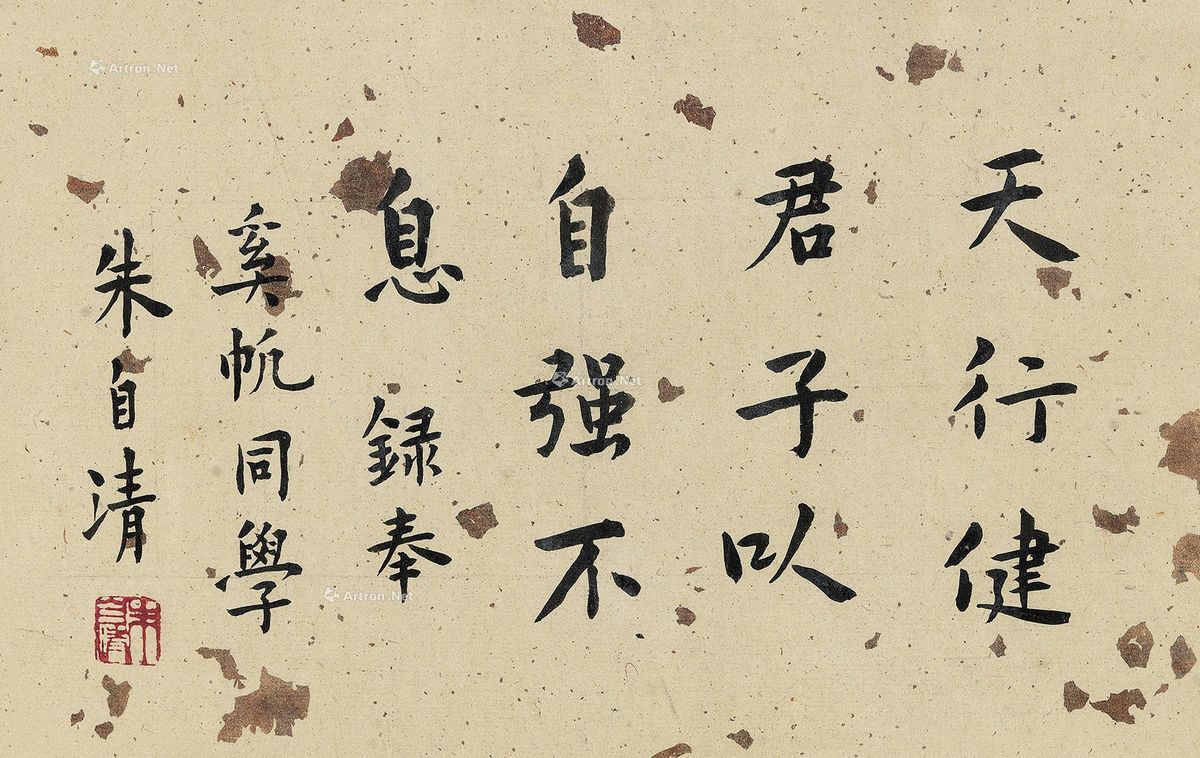 天行健
君子以
自强不
息 録奉
奚帆同學
朱自清
Artron.Net
Artron.Net
Artron.Net